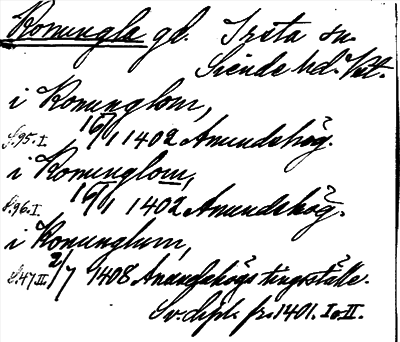 Konungla gd. Irsta sn.
Siende hd. Vstm.
i Konunglom,
S. 95. I. 16/1 1402 Anundshög.
i Konunglom,
S. 96. I. 16/1 1402 Anundshög.
i Konunglum,
S. 47. II. 2/7 1408 Anundshögs tingställe.
Sv. dipl. fr. 1401. I o II.